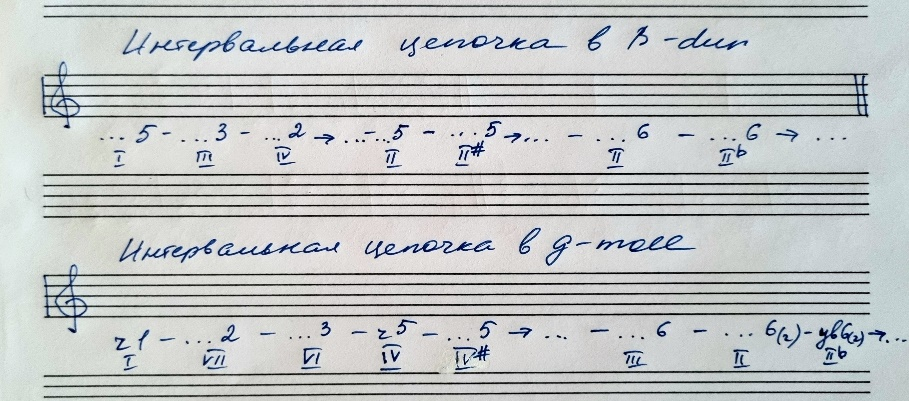 Интервальная цепочка в B-dur
... 5 - ... 3 - ... 2 → ... - ... 5 - ... 5 → ... - ... 6 - ... 6 → ...
I III IV II II# II IIb
Интервальная цепочка в g-moll
ч1 - ... 2 - ... 3 - ч5 - ... 5 → ... - ... 6 - ... 6(2) - ув6(2) → ...
I VII VI IV IV# III II IIb